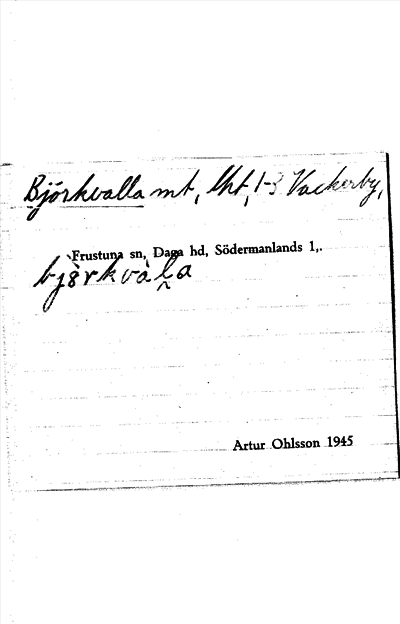 Björkvalla mt, lht, 1-3 Vackerby,
Frustuna sn, Daga hd, Södermanlands l,.
Artur Ohlsson 1945